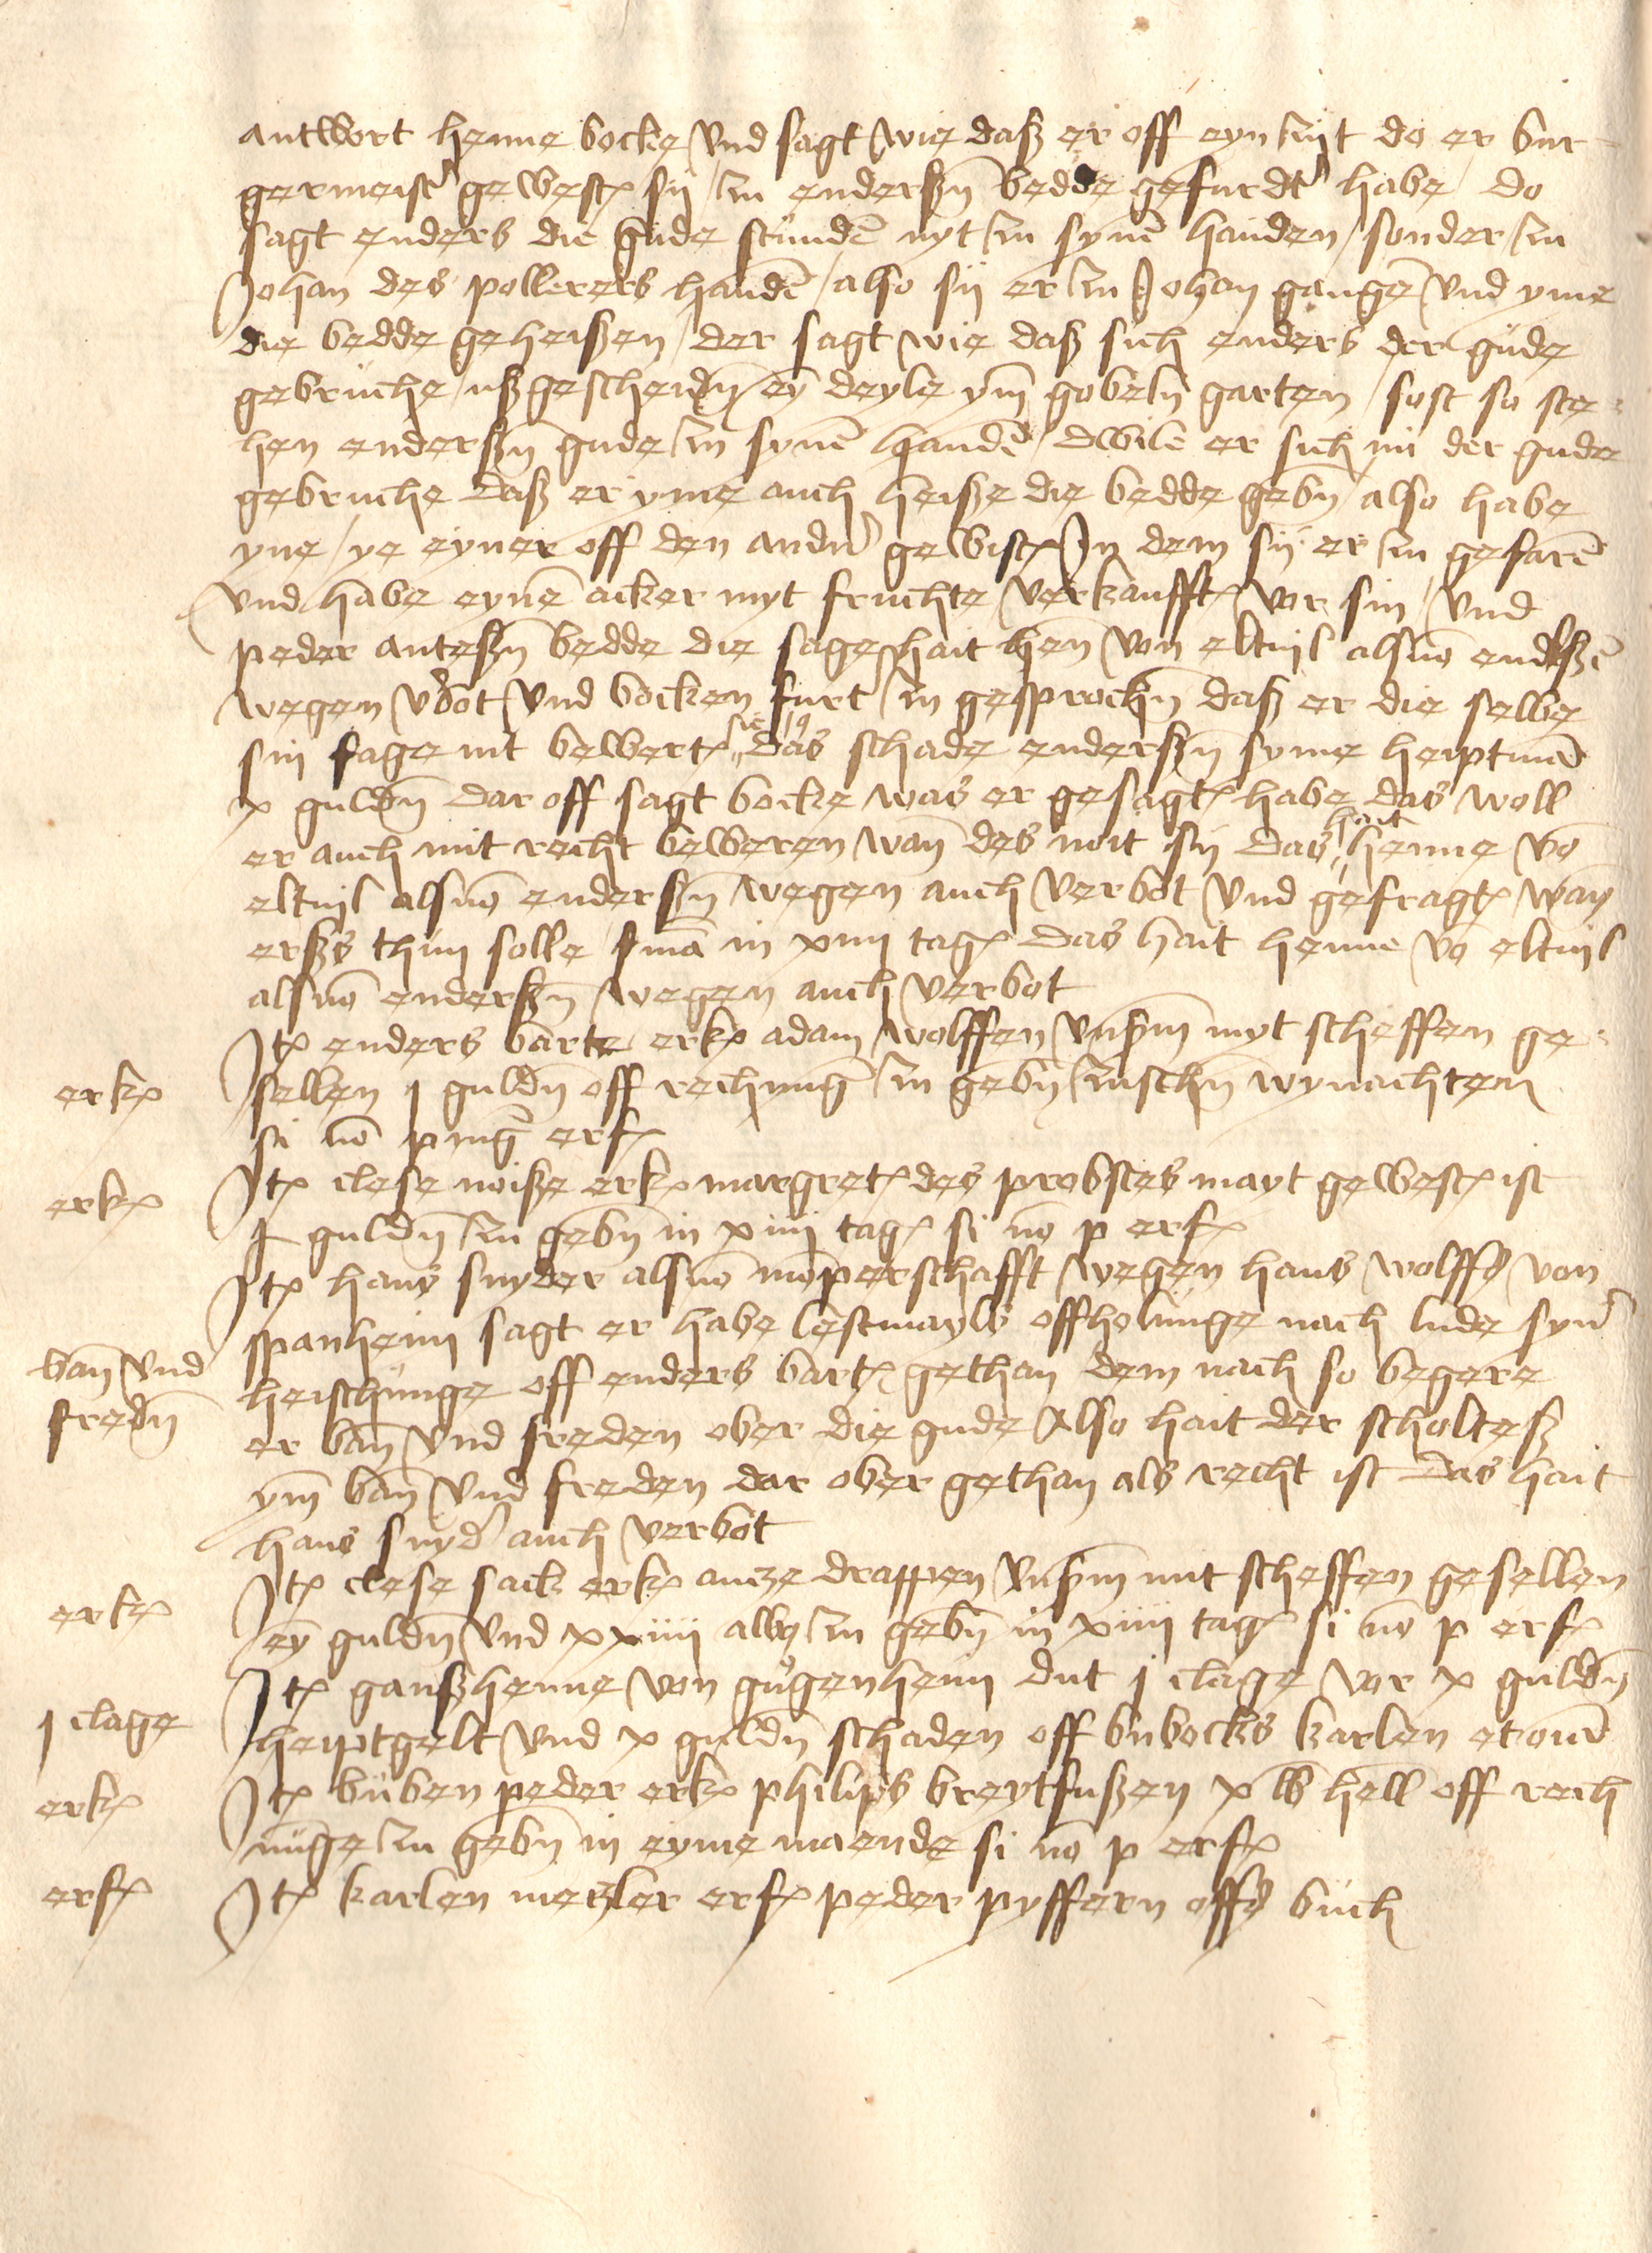 antwort henne bocke vnd sagt wie daß er off eyn zijt do er bur-
germeist' gewest sij zu enderßn bedde gefurdt' habe / do
sagt enders die gude stunden nyt zu synē handen / sonder zu
Johan des pollerers handē / also sij er zu Johan gangē vnd yme
die bedde geheißen / der sagt wie daß sich enders der gude
gebruche / ußgescheidn ey deyle ym gobeln garten / sost so ste-
hen enderßn gude zu synē handē / dwile er sich nu der gude
gebruche daß er yme auch heiße die bedde gebn / also habe
yne / ye eyner off den andn' gewist Jn dem sij er zu gefarē
vnd habe eynē acker myt fruchte verkaufft vor sin / vnd
peder anteßn bedde die sage hait hen von eltuil als vō end'ßē
wegen v'bot vnd bocken furt zu gesprochn daß er die selbe
sin sage nit bewert das schade enderßn syme heiptmā
x guldn dar off sagt bocke was er gesagt habe das woll
er auch mit recht beweren wan des noit sij das hait henne vō
eltuil als vō enderßn wegen auch verbot vnd gefragt wan
erßs thun solle s'mā in xiiij tag das hait henne vō eltuil
als vō enderßn wegen auch verbot
erk Jt enders barte erk adam wolffen vnßm myt scheffen ge-
sellen j guldn off rechnung zu gebn zuschn wynachten
si nō p'ng erf
erk Jt clese noiße erk margret des probstes mayt gewest ist
j guldn zu gebn in xiiij tag si nō p erf
Jt hans snyder als vō mōperschafft wegen hans wolffs von
spanheim sagt er habe lestmayls offholunge nach lude syn'
ban vnd heischunge off enders bart gethan dem nach so begere
fredn er ban vnd freden ober die gude Also hait der scholteß
ym ban vnd freden dar ober gethan als recht ist das hait
hans snyd' auch verbot
erk Jt clese sack erk antze drappen vnßm mit scheffen gesellen
ey guldn vnd xxiiij alb zu gebn in xiiij tag si nō p erf
Jt ganßhenne von gugenheim dut j clage vor x guldn
j clage heiptgelt vnd x guldn schaden off bubocks karlen et om̄
erk Jt buben peder erk philips breytfußen x lb hell off rech
nunge zu gebn in eyme maende si nō p erf
erf Jt karlen metzler erf peder pyffern offs buch